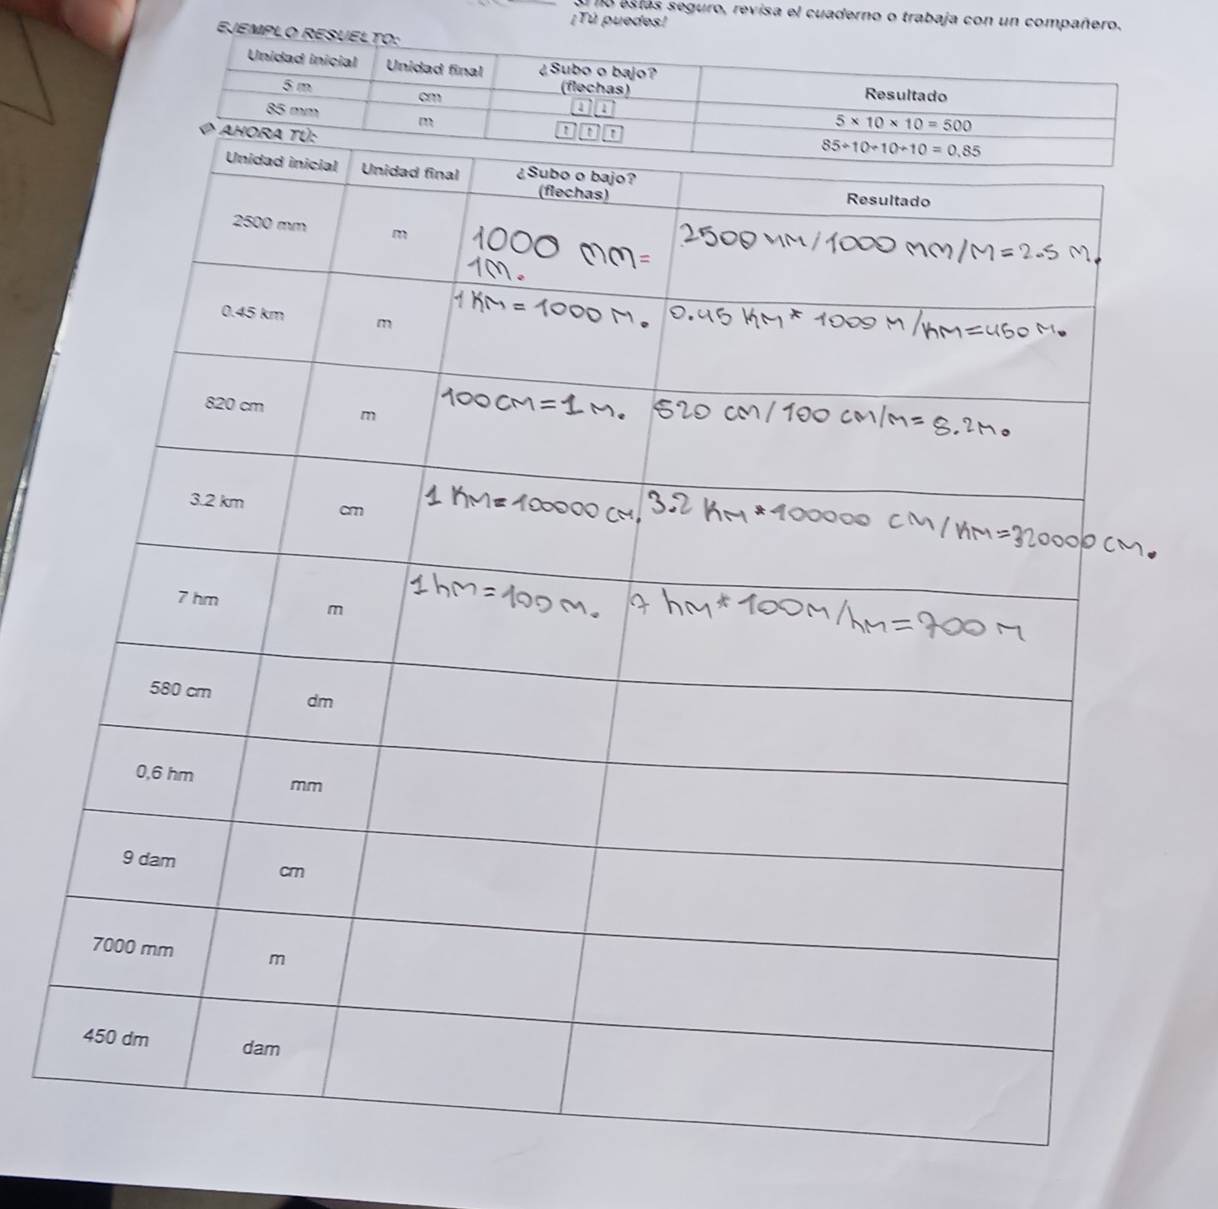 no estás seguro, revisa el cuaderno o trabaja con un compañero.
¡Tú puedes!
EJEMPLO RESUELTO:
Unidad inicial Unidad final ¿Subo o bajo? (flechas) Resultado
5 m cm ↓ ↓ 5 × 10 × 10 = 500
85 mm m ↑ ↑ ↑ 85÷10÷10÷10 = 0,85
AHORA TÚ:
Unidad inicial Unidad final ¿Subo o bajo? (flechas) Resultado
2500 mm m 1000 mm = 1m. 2500 mm/1000 mm/m = 2.5 m.
0.45 km m 1 km = 1000 m. 0.45 km * 1000 m/km = 450 m.
820 cm m 100 cm = 1 m. 820 cm/100 cm/m = 8.2 m.
3.2 km cm 1 km = 100000 cm. 3.2 km * 100000 cm/km = 320000 cm.
7 hm m 1 hm = 100 m. 7 hm * 100 m/hm = 700 m
580 cm dm
0,6 hm mm
9 dam cm
7000 mm m
450 dm dam